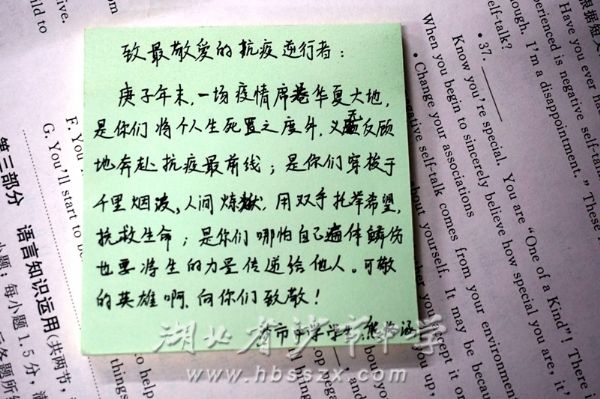 致最敬爱的抗疫逆行者：
庚子年末，一场疫情席卷华夏大地，
是你们将个人生死置之度外，义无反顾
地奔赴抗疫最前线；是你们穿梭于
千里烟波，人间炼狱，用双手托举希望，
抗救生命；是你们哪怕自己遍体鳞伤
也要将生的力量传递给他人。可敬
的英雄啊，向你们致敬！
沙市中学学生 熊
湖北省沙市中学
www.hbssx.com
第三部分 语言知识运用（共两节，
小题，每小题1.5分，满
F. You
G. You'll start to
37.
Know you're special. You are "One of a Kind"! There
When you begin to sincerely believe how special you are,
Change your associations
negative self-talk comes from your environment.
about yourself. It may be because
self-talk?
Have you ever
experienced is negative self-
though, I'm a disappointment." These
to help
things